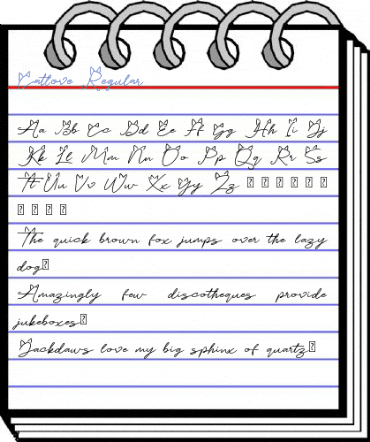 Catlove Regular
Aa Bb Cc Dd Ee Ff Gg Hh Ii Jj
Kk Ll Mm Nn Oo Pp Qq Rr Ss
Tt Uu Vv Ww Xx Yy Zz
The quick brown fox jumps over the lazy
dog
Amazingly few discotheques provide
jukeboxes
Jackdaws love my big sphinx of quartz